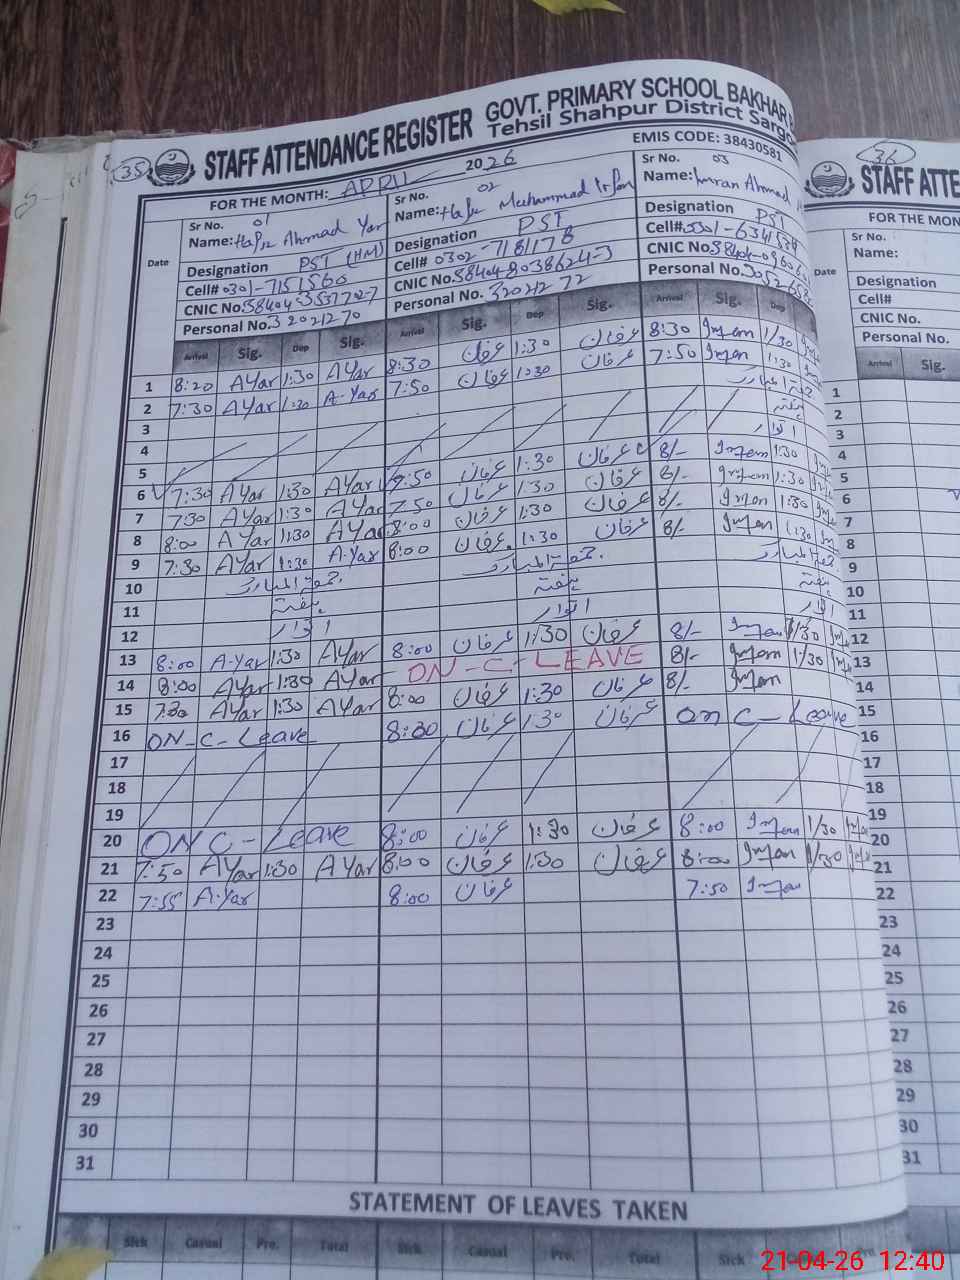 35
STAFF ATTENDANCE REGISTER GOVT. PRIMARY SCHOOL BAKHAR
Tehsil Shahpur District Sargo
EMIS CODE: 38430581
FOR THE MONTH: APRIL 2026
Sr No. 01
Name: Hafiz Ahmad Yar
Designation PST (HM)
Cell# 0301-7151560
CNIC No.
Personal No. 32021270
Sr No. 02
Name: Hafiz Muhammad Irfan
Designation PST
Cell# 0302-7181178
CNIC No. 38404-8038624-3
Personal No. 32021272
Sr No. 03
Name: Imran Ahmad
Designation PST
Cell# 0301-
CNIC No.
Personal No.
Date Arrival Sig. Dep Sig. Arrival Sig. Dep Sig. Arrival Sig. Dep
1 8:20 AYar 1:30 AYar 8:30 عرفان 1:30 عرفان 8:30 1/30
2 7:30 AYar 1:30 A.Yar 7:50 عرفان 1:30 عرفان 7:50 1:30
3 جمعۃ المبارک
4 ہفتہ
5 اتوار
6 7:30 AYar 1:30 AYar 7:50 عرفان 1:30 عرفان 8/- 1:30
7 7:30 AYar 1:30 AYar 7:50 عرفان 1:30 عرفان 8/- 1:30
8 8:00 AYar 1:30 AYar 8:00 عرفان 1:30 عرفان 8/- 1:30
9 7:30 AYar 1:30 A.Yar 8:00 عرفان 1:30 عرفان 8/- 1:30
10 جمعۃ المبارک جمعۃ المبارک جمعۃ المبارک
11 ہفتہ ہفتہ ہفتہ
12 اتوار اتوار اتوار
13 8:00 A.Yar 1:30 AYar 8:00 عرفان 1:30 عرفان 8/- 1/30
14 8:00 AYar 1:30 AYar ON-C-LEAVE 8/- 1/30
15 7:30 AYar 1:30 AYar 8:00 عرفان 1:30 عرفان 8/-
16 ON-C-Leave 8:00 عرفان 1:30 عرفان on C-Leave
17
18
19
20 ON C-Leave 8:00 عرفان 1:30 عرفان 8:00 1/30
21 7:50 AYar 1:30 AYar 8:00 عرفان 1:30 عرفان 8:00 1/30
22 7:55 A.Yar 8:00 عرفان 7:50
23
24
25
26
27
28
29
30
31
STATEMENT OF LEAVES TAKEN
Sick Casual Pre. Total Sick Casual Pre. Total Sick
36
STAFF ATTE
FOR THE MON
Sr No.
Name:
Date
Designation
Cell#
CNIC No.
Personal No.
Arrival Sig.
1
2
3
4
5
6
7
8
9
10
11
12
13
14
15
16
17
18
19
20
21
22
23
24
25
26
27
28
29
30
31
21-04-26 12:40